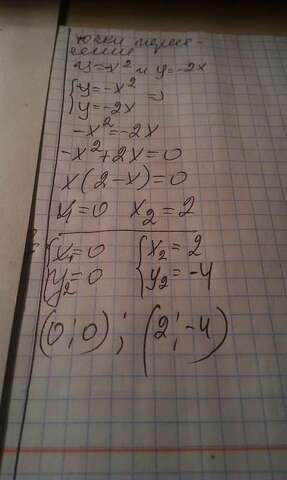 точки пересе-
чения
y=-x² и y=-2x
{y=-x²
y=-2x =>
-x²=-2x
-x²+2x=0
x(2-x)=0
x₁=0 x₂=2
{x₁=0 {x₂=2
y₂=0 y₂=-4
(0;0); (2;-4)